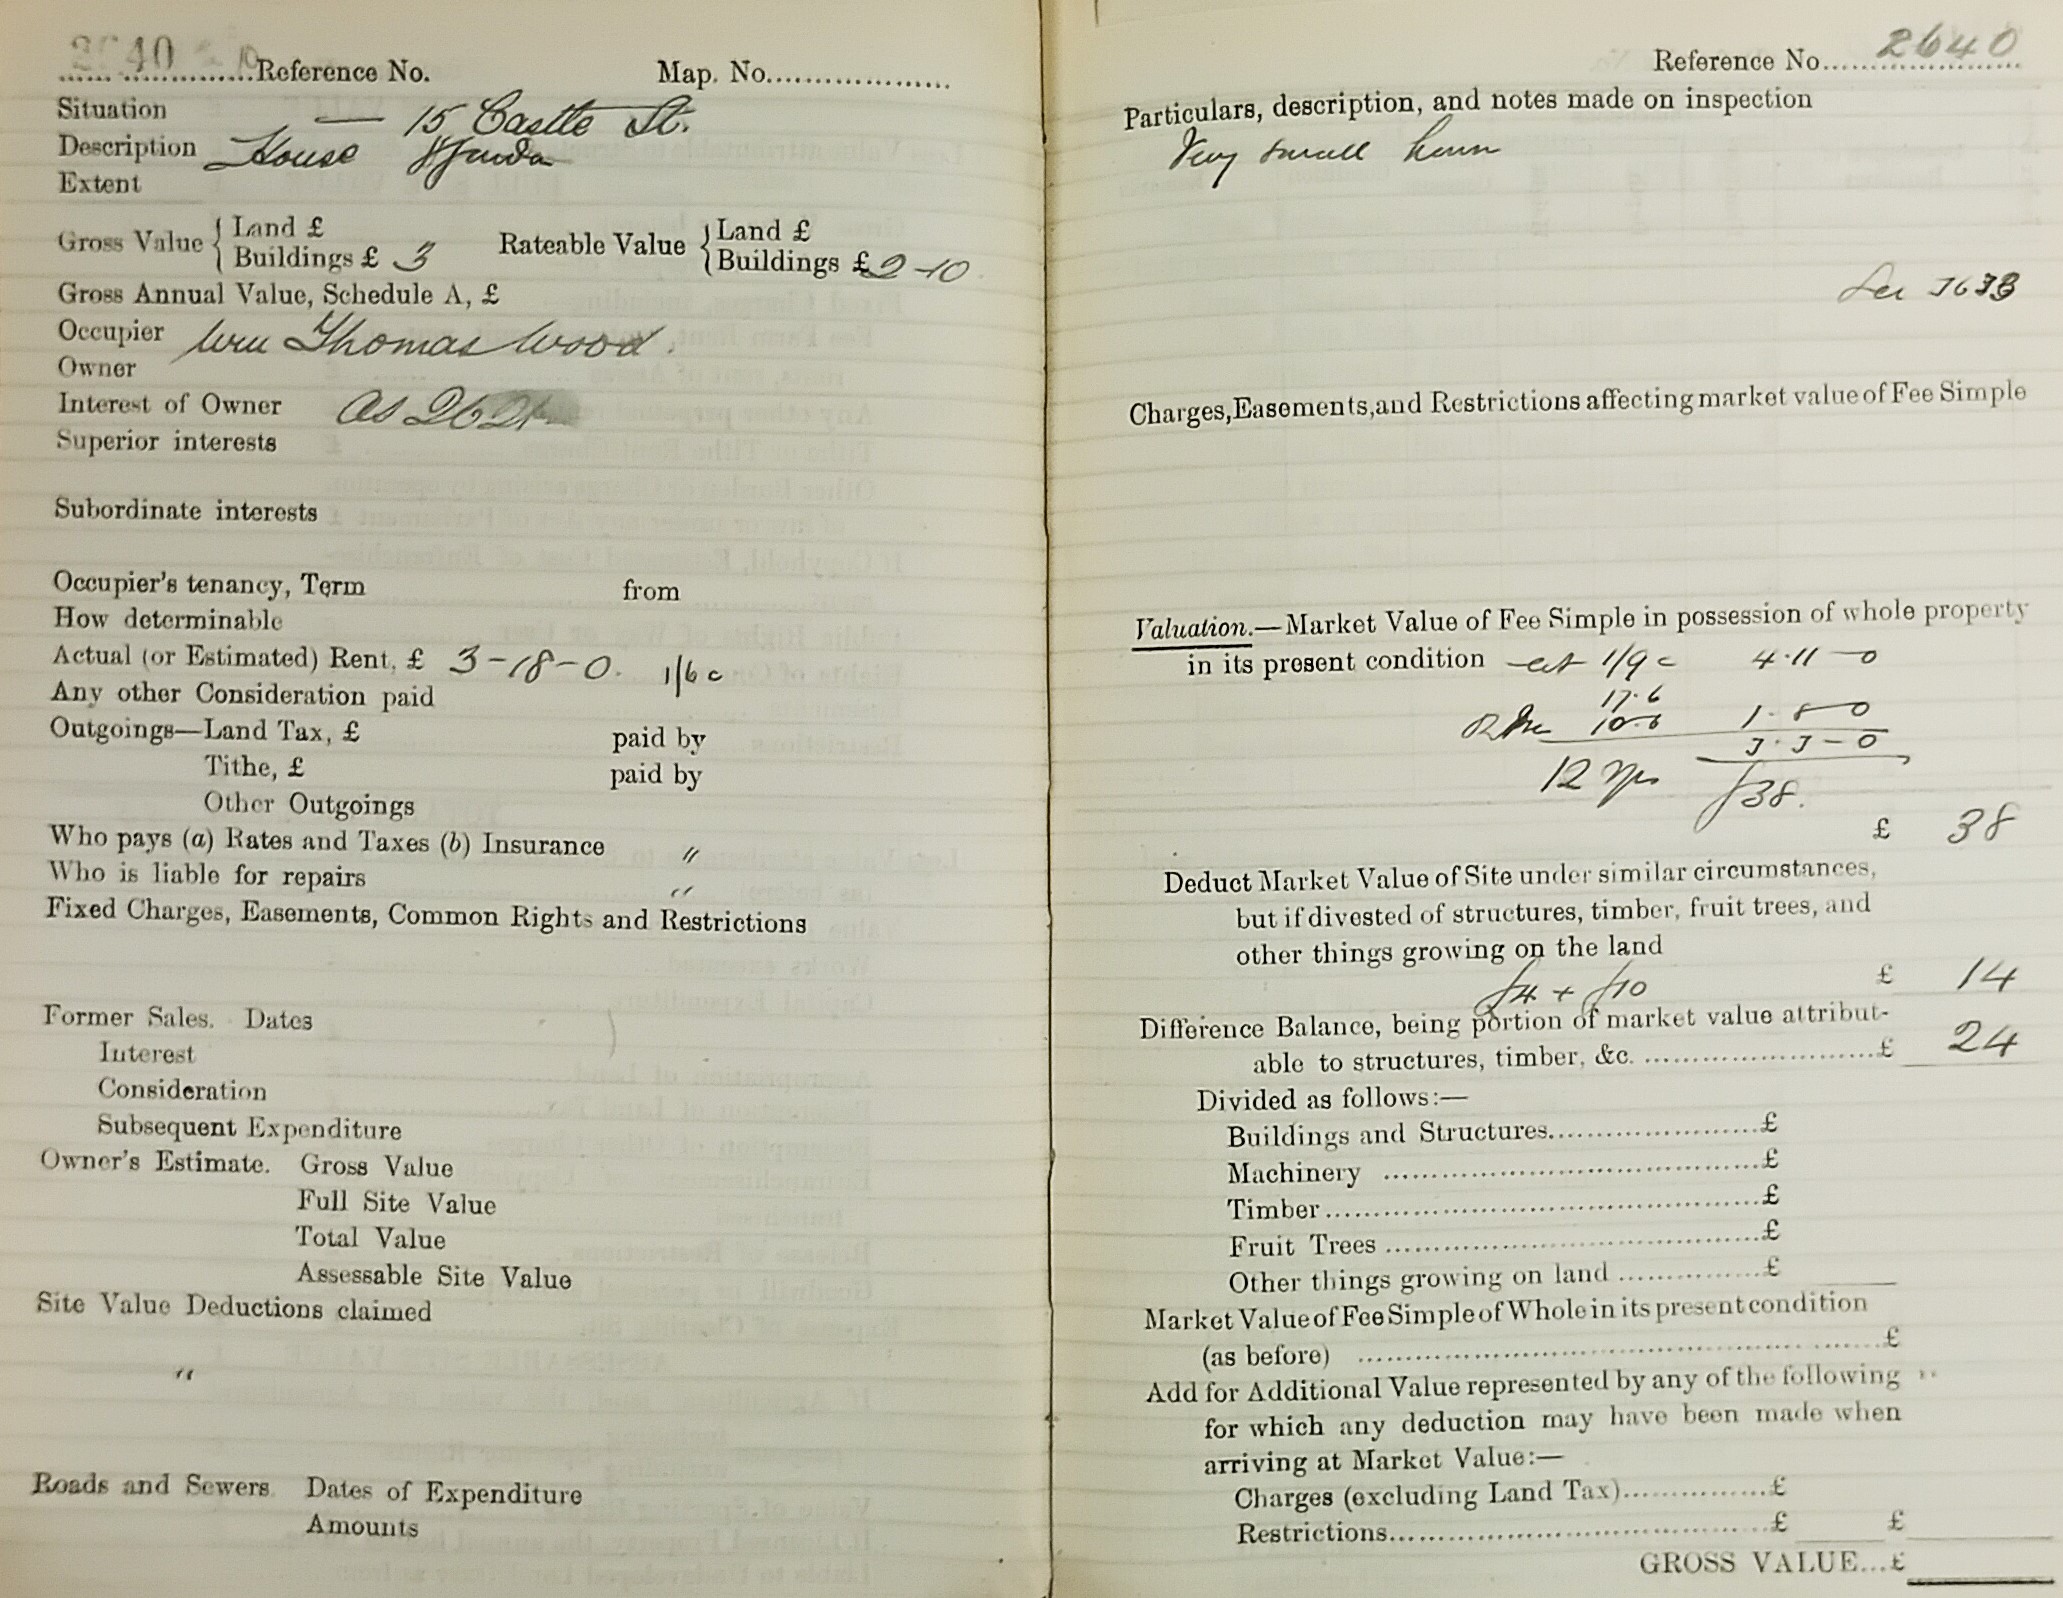 2640 Reference No. Map. No....................
Situation — 15 Castle St.
Description House & Garden
Extent
Gross Value { Land £
Buildings £ 3
Rateable Value { Land £
Buildings £ 2-10
Gross Annual Value, Schedule A, £
Occupier Wm Thomas Wood.
Owner
Interest of Owner As 262
Superior interests
Subordinate interests
Occupier's tenancy, Term from
How determinable
Actual (or Estimated) Rent, £ 3-18-0. 1/6 c
Any other Consideration paid
Outgoings—Land Tax, £ paid by
Tithe, £ paid by
Other Outgoings
Who pays (a) Rates and Taxes (b) Insurance "
Who is liable for repairs "
Fixed Charges, Easements, Common Rights and Restrictions
Former Sales. Dates
Interest
Consideration
Subsequent Expenditure
Owner's Estimate. Gross Value
Full Site Value
Total Value
Assessable Site Value
Site Value Deductions claimed
"
Roads and Sewers Dates of Expenditure
Amounts
Reference No. 2640
Particulars, description, and notes made on inspection
Very small house
See 3633
Charges, Easements, and Restrictions affecting market value of Fee Simple
Valuation.—Market Value of Fee Simple in possession of whole property
in its present condition at 1/9 c 4-11-0
17.6
10-6 1-8-0
3-3-0
12 yrs £38.
£ 38
Deduct Market Value of Site under similar circumstances,
but if divested of structures, timber, fruit trees, and
other things growing on the land
£4 + £10 £ 14
Difference Balance, being portion of market value attribut-
able to structures, timber, &c. ........................£ 24
Divided as follows:—
Buildings and Structures......................£
Machinery ........................................£
Timber..............................................£
Fruit Trees ........................................£
Other things growing on land ...............£
Market Value of Fee Simple of Whole in its present condition
(as before) ........................................................£
Add for Additional Value represented by any of the following
for which any deduction may have been made when
arriving at Market Value:—
Charges (excluding Land Tax)...............£
Restrictions.......................................£ £
GROSS VALUE...£